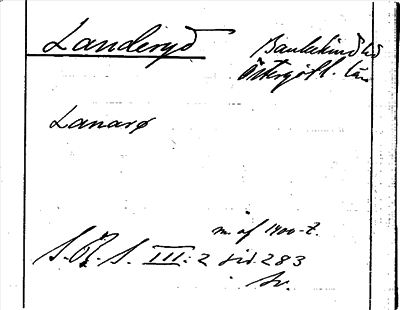 Landeryd
Bankekind hd
Östergötl. län
Lanarø
m. af 1400-t.
S.R.S. III:2 sid. 283